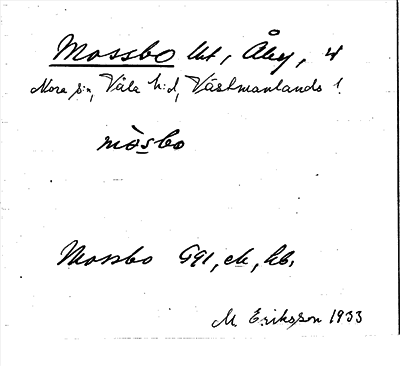 Mossbo lht, Åby, 4
Nora s:n, Våla h:d, Västmanlands l.
mòsbo
Mossbo G91, ek, hb.
M Eriksson 1933